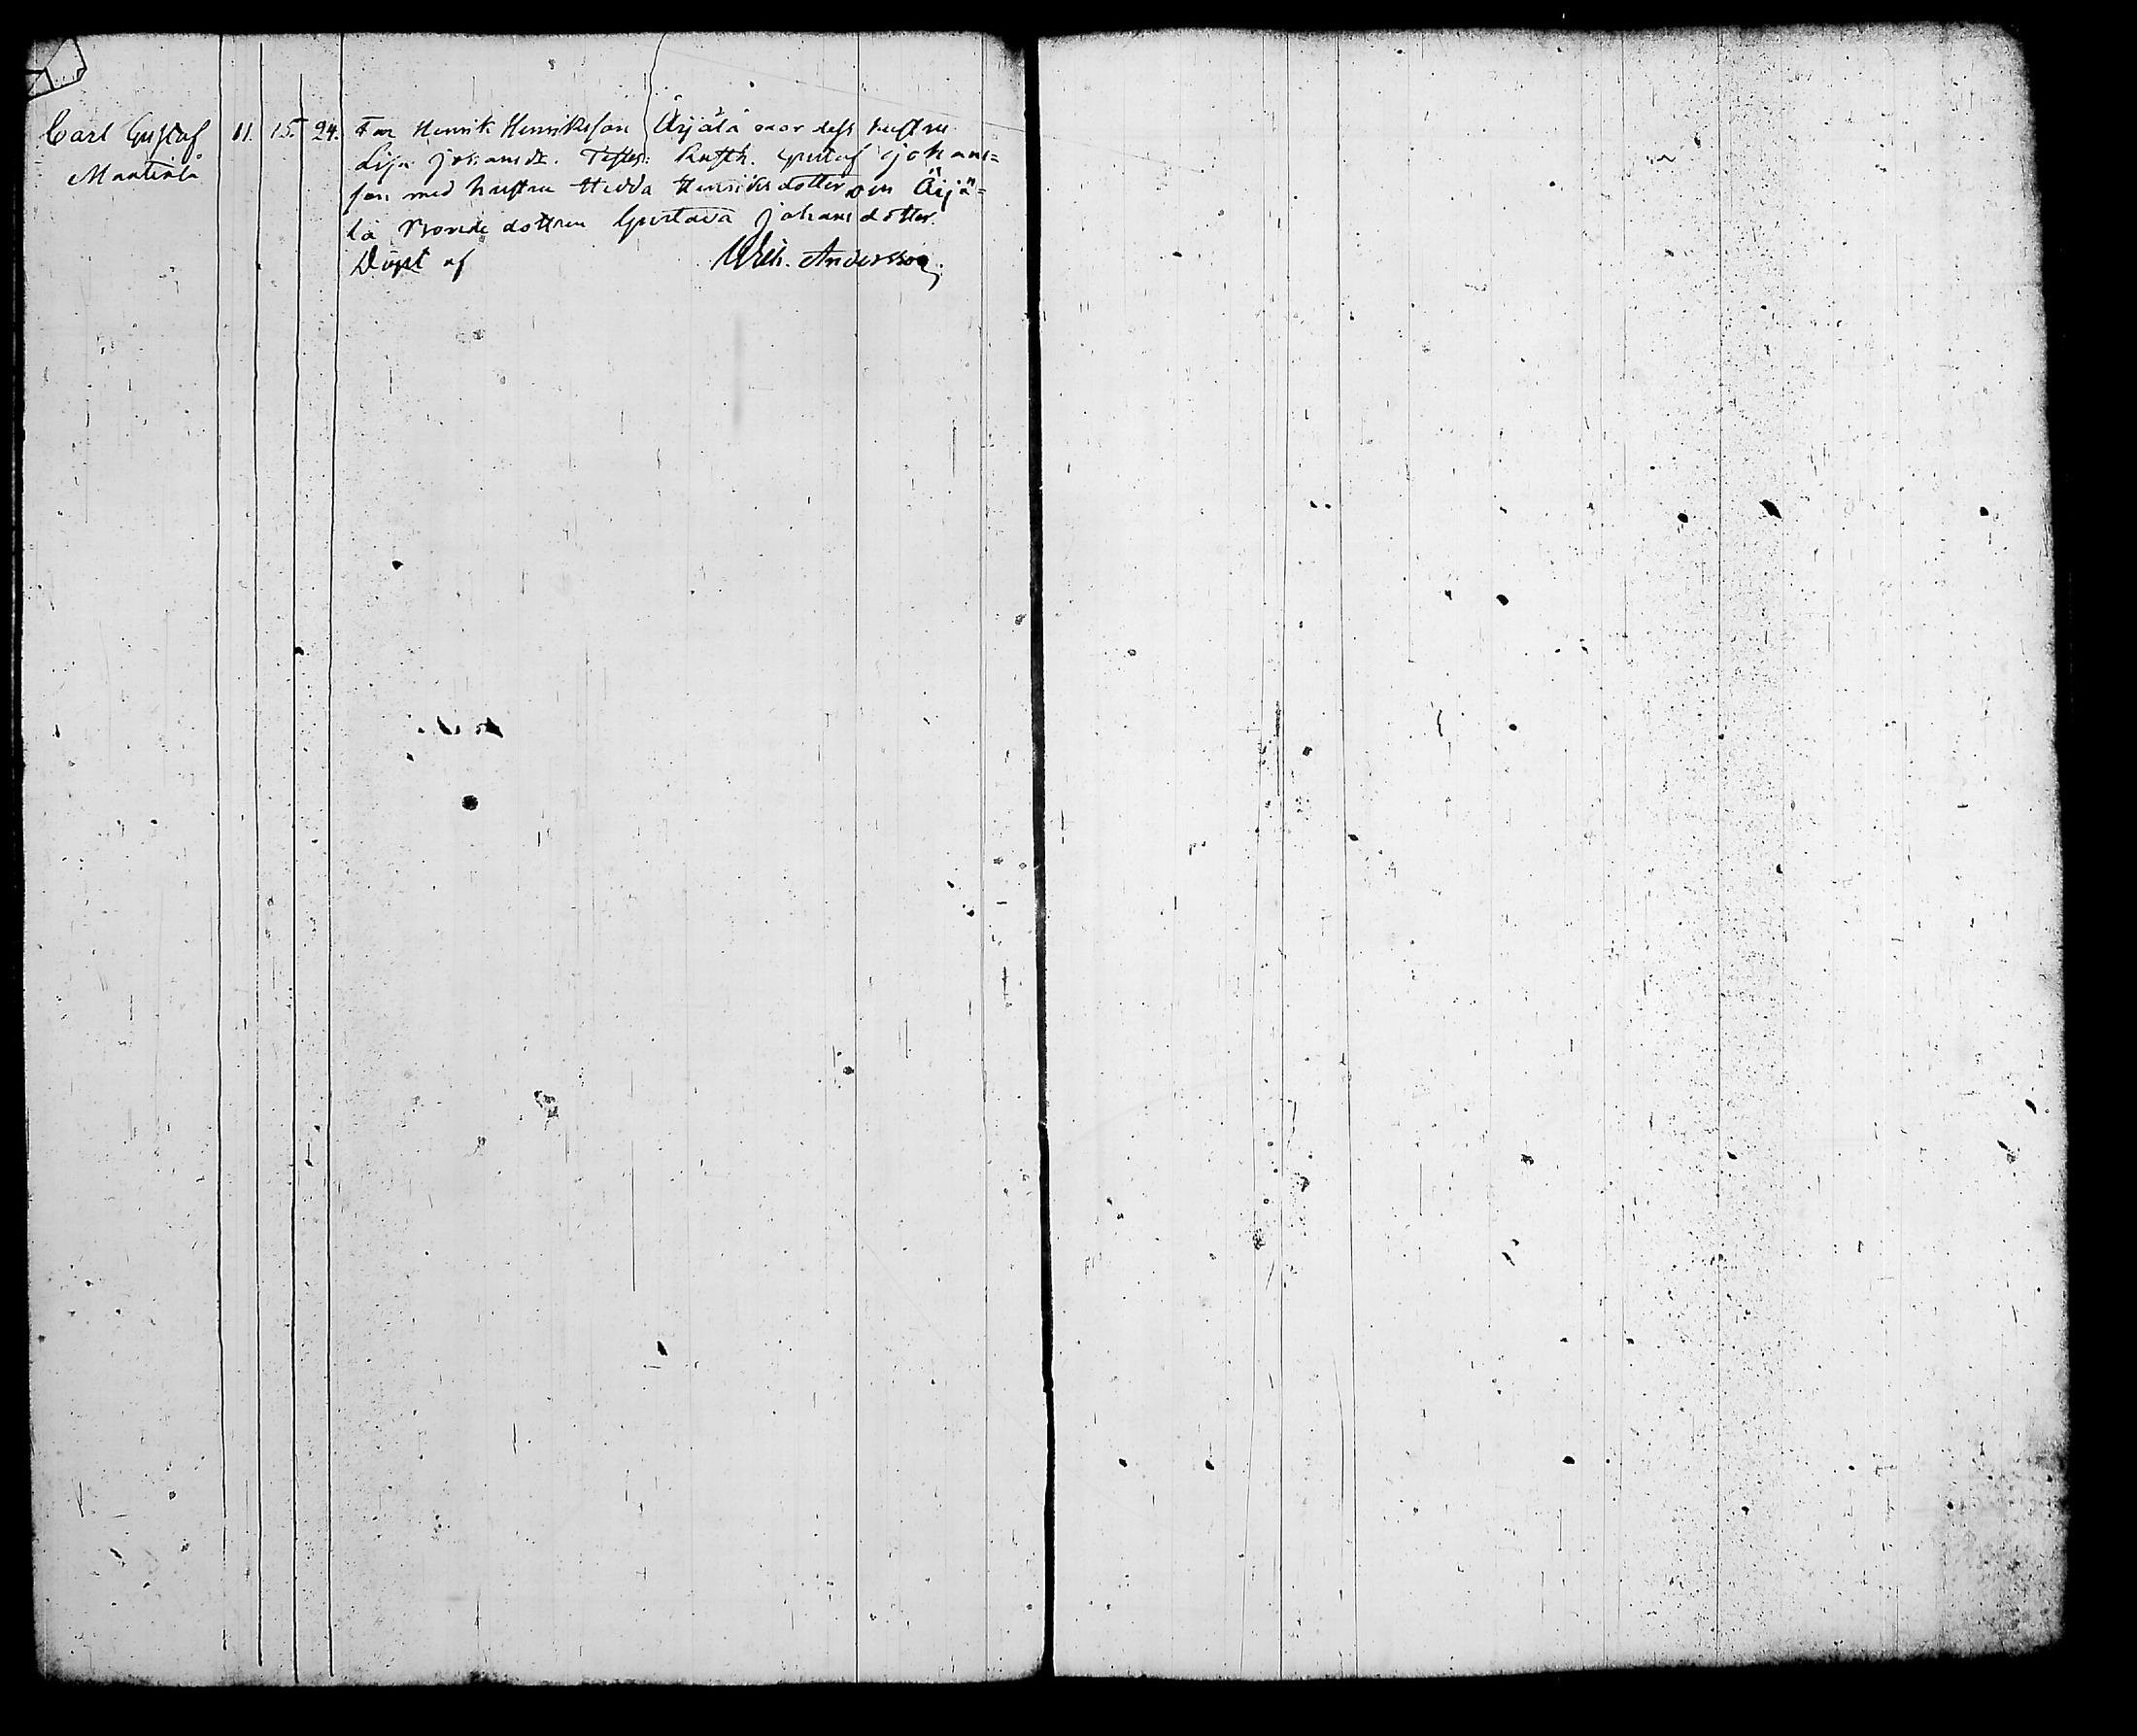 Carl Gustaf 11. 15. 24. Far Henrik Henriksson Äijälä mor dess hustru
Mantila Lisa Johansdr. Testes: Rusth. Gustaf Johans=
son med hustru Hedda Henriksdotter om Äijä=
lä Bonde dottren Gustava Johansdotter.
Döpt af Wilh. Andersson